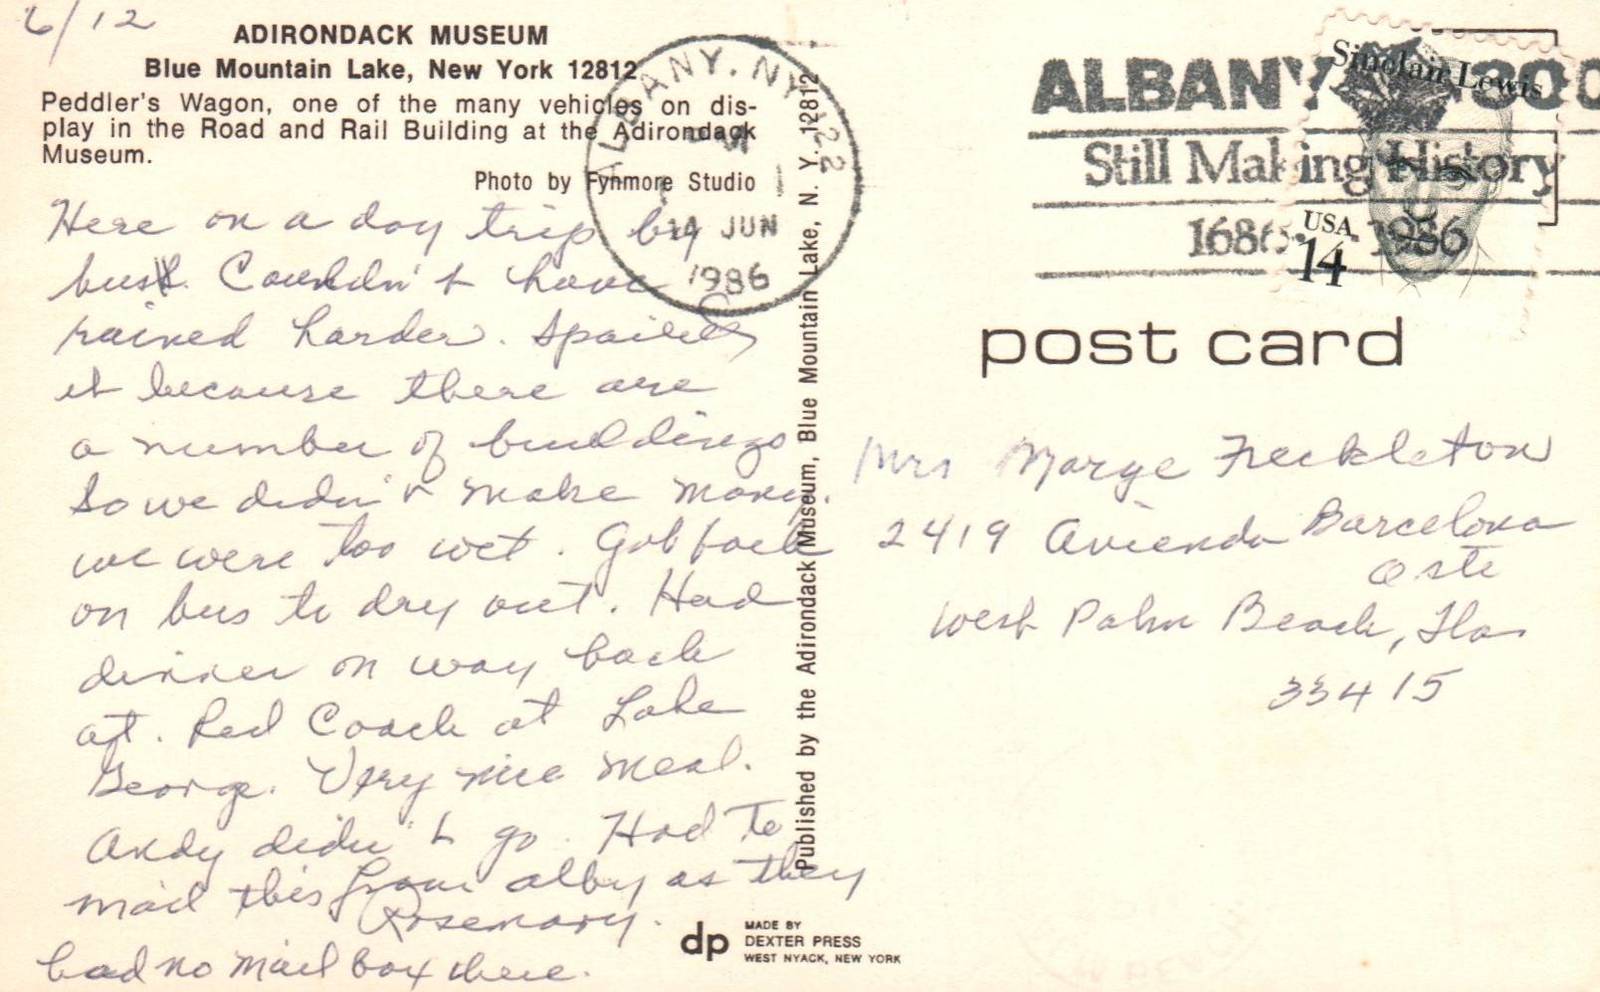 6/12
ADIRONDACK MUSEUM
Blue Mountain Lake, New York 12812
Peddler's Wagon, one of the many vehicles on dis-
play in the Road and Rail Building at the Adirondack
Museum.
Photo by Fynmore Studio
Here on a day trip by
bus. Couldn't have
rained harder. Spoiled
it because there are
a number of buildings
So we didn't make many.
we were too wet. Got back
on bus to dry out. Had
dinner on way back
at. Red Coach at Lake
George. Very nice meal.
Andy didn't go. Had to
mail this from Alby as they
had no mail box there.
Rosemary.
ALBANY, NY 122
PM
14 JUN
1986
Published by the Adirondack Museum, Blue Mountain Lake, N. Y. 12812
dp
MADE BY
DEXTER PRESS
WEST NYACK, NEW YORK
ALBANY 300
Still Making History
1686 · 1986
Sinclair Lewis
USA
14
post card
Mrs Marge Freckleton
2419 Avienda Barcelona
Oste
West Palm Beach, Fla
33415